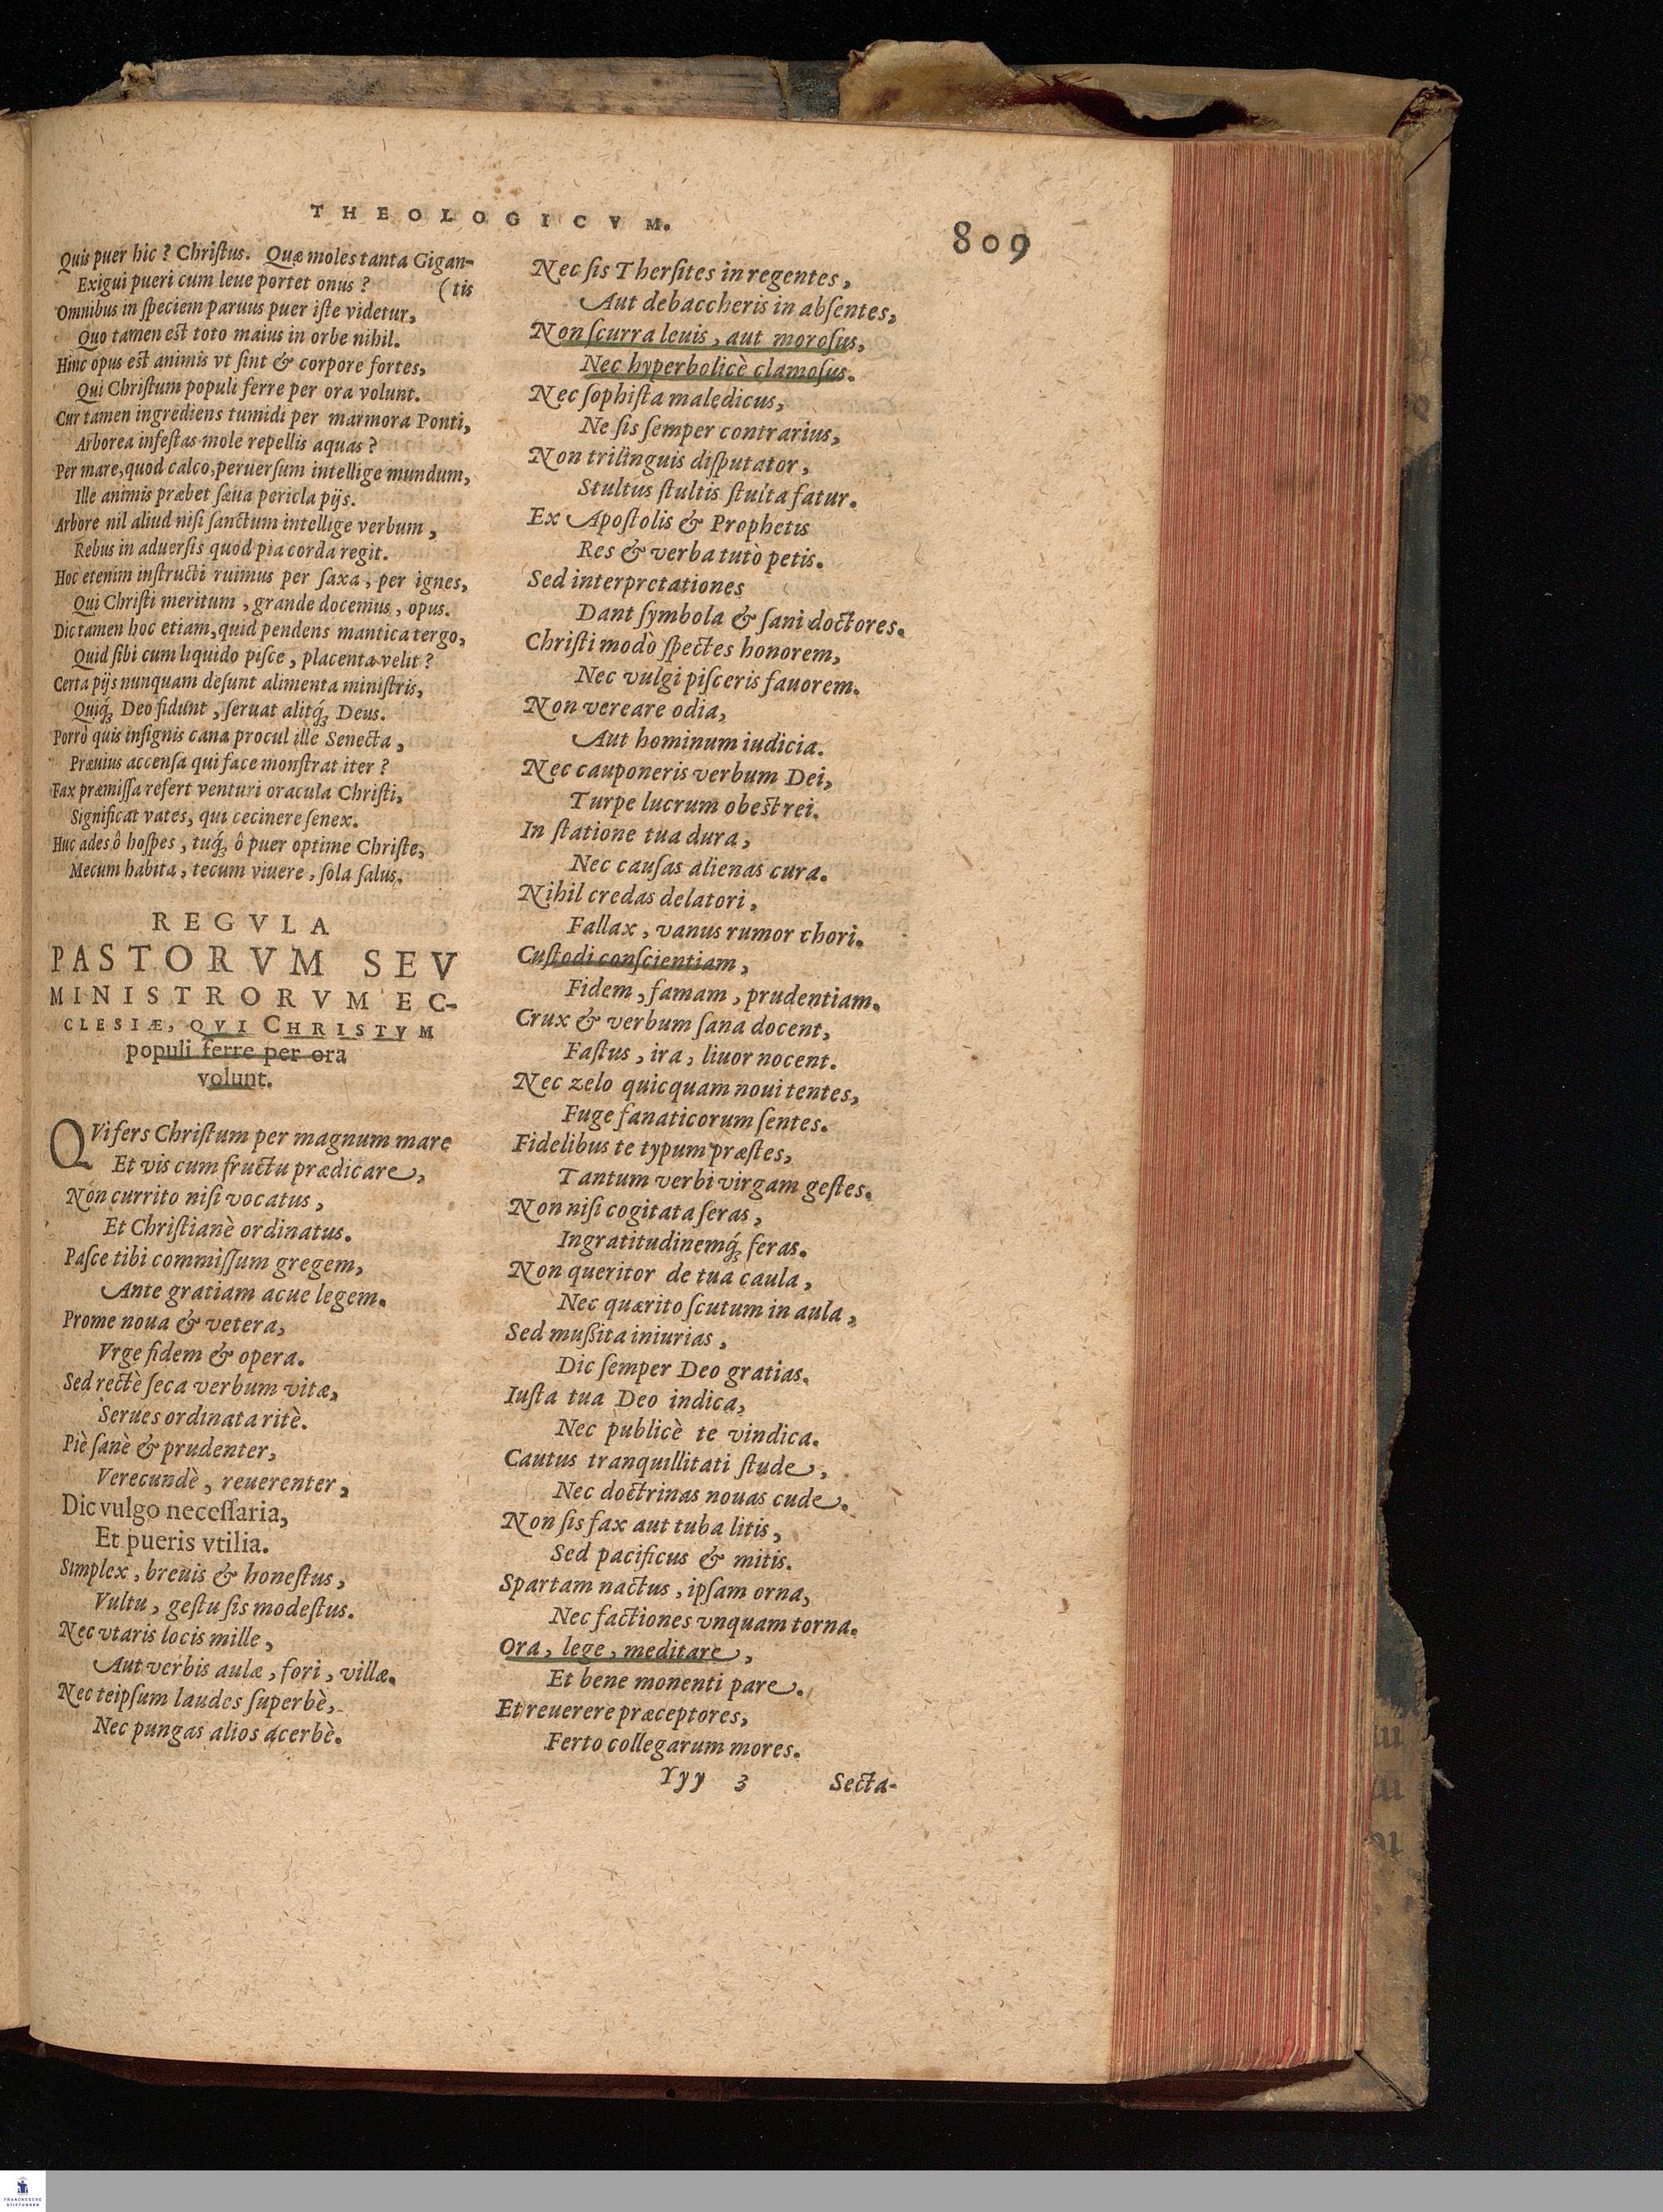 THEOLOGICVM.
809
Quis puer hic? Chriſtus. Quæ moles tanta Gigan-
Exigui pueri cum leue portet onus? (tis
Omnibus in ſpeciem paruus puer iſte videtur,
Quo tamen eſt toto maius in orbe nihil.
Hinc opus eſt animis vt ſint & corpore fortes,
Qui Chriſtum populi ferre per ora volunt.
Cur tamen ingrediens tumidi per marmora Ponti,
Arborea infeſtas mole repellis aquas?
Per mare, quod calco, peruerſum intellige mundum,
Ille animis præbet ſæua pericla pijs.
Arbore nil aliud niſi ſanctum intellige verbum,
Rebus in aduerſis quod pia corda regit.
Hoc etenim inſtructi ruimus per ſaxa, per ignes,
Qui Chriſti meritum, grande docemus, opus.
Dic tamen hoc etiam, quid pendens mantica tergo,
Quid ſibi cum liquido piſce, placenta velit?
Certa pijs nunquam deſunt alimenta miniſtris,
Quiq́ꝫ Deo fidunt, ſeruat alitq́ꝫ Deus.
Porrò quis inſignis cana procul ille Senecta,
Præuius accenſa qui face monſtrat iter?
Fax præmiſſa refert venturi oracula Chriſti,
Significat vates, qui cecinere ſenex.
Huc ades ô hoſpes, tuq́ꝫ ô puer optime Chriſte,
Mecum habita, tecum viuere, ſola ſalus.
REGVLA
PASTORVM SEV
MINISTRORVM EC-
CLESIÆ, QVI CHRISTVM
populi ferre per ora
volunt.
QVi fers Chriſtum per magnum mare
Et vis cum fructu prædicare,
Non currito niſi vocatus,
Et Chriſtianè ordinatus.
Paſce tibi commiſſum gregem,
Ante gratiam acue legem.
Prome noua & vetera,
Vrge fidem & opera.
Sed rectè ſeca verbum vitæ,
Serues ordinata ritè.
Piè ſanè & prudenter,
Verecundè, reuerenter,
Dic vulgo neceſſaria,
Et pueris vtilia.
Simplex, breuis & honeſtus,
Vultu, geſtu ſis modeſtus.
Nec vtaris locis mille,
Aut verbis aulæ, fori, villæ.
Nec teipſum laudes ſuperbè,
Nec pungas alios acerbè.
Nec ſis Therſites in regentes,
Aut debaccheris in abſentes,
Non ſcurra leuis, aut moroſus,
Nec hyperbolicè clamoſus.
Nec ſophiſta maledicus,
Ne ſis ſemper contrarius,
Non trilinguis diſputator,
Stultus ſtultis ſtulta fatur.
Ex Apoſtolis & Prophetis
Res & verba tutò petis.
Sed interpretationes
Dant ſymbola & ſani doctores.
Chriſti modò ſpectes honorem,
Nec vulgi piſceris fauorem.
Non vereare odia,
Aut hominum iudicia.
Nec cauponeris verbum Dei,
Turpe lucrum obeſt rei.
In ſtatione tua dura,
Nec cauſas alienas cura.
Nihil credas delatori,
Fallax, vanus rumor chori.
Cuſtodi conſcientiam,
Fidem, famam, prudentiam.
Crux & verbum ſana docent,
Faſtus, ira, liuor nocent.
Nec zelo quicquam noui tentes,
Fuge fanaticorum ſentes.
Fidelibus te typum præſtes,
Tantum verbi virgam geſtes.
Non niſi cogitata ſeras,
Ingratitudinemq́ꝫ feras.
Non queritor de tua caula,
Nec quærito ſcutum in aula,
Sed muſsita iniurias,
Dic ſemper Deo gratias.
Iuſta tua Deo indica,
Nec publicè te vindica.
Cautus tranquillitati ſtude,
Nec doctrinas nouas cude.
Non ſis fax aut tuba litis,
Sed pacificus & mitis.
Spartam nactus, ipſam orna,
Nec factiones vnquam torna.
Ora, lege, meditare,
Et bene monenti pare.
Et reuerere præceptores,
Ferto collegarum mores.
Yyy 3 Secta-
FRANCKESCHE
STIFTUNGEN